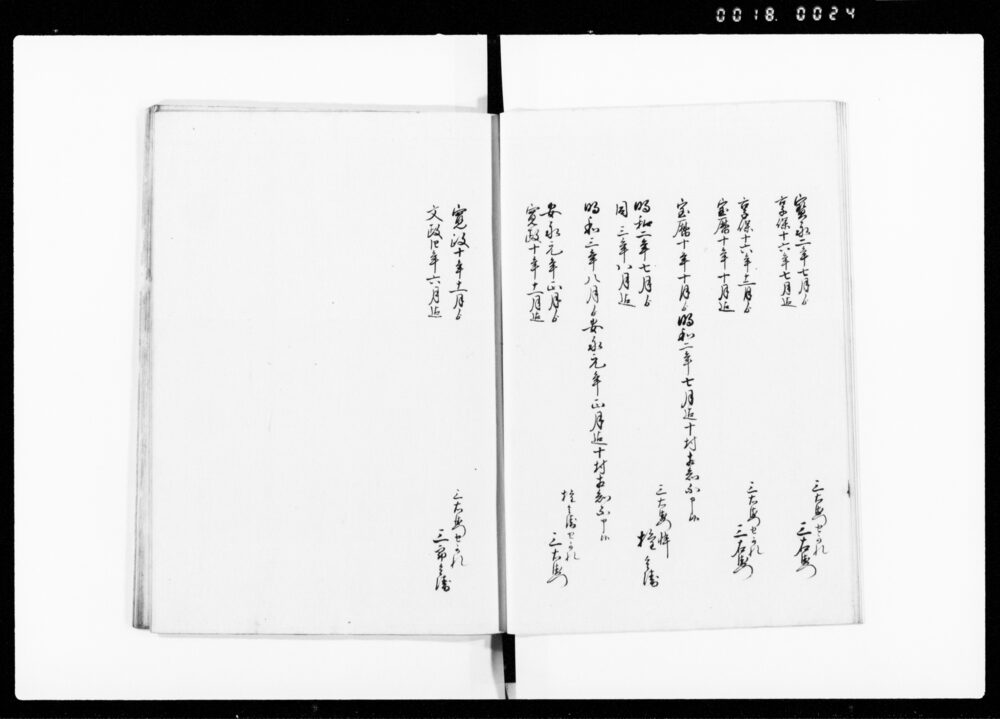 0018. 0024
宝永二年七月ゟ
享保十六年七月迄
三右衛門せかれ
三右衛門
享保十六年十二月ゟ
宝暦十年十月迄
三右衛門せかれ
三右衛門
宝暦十年十月ゟ明和二年七月迄十村
明和二年七月ゟ
同三年八月迄
三右衛門悴
権兵衛
明和三年八月ゟ安永元年正月迄十村
安永元年正月ゟ
寛政十年十二月迄
権兵衛せかれ
三右衛門
寛政十年十二月ゟ
文政四年六月迄
三右衛門せかれ
三郎兵衛